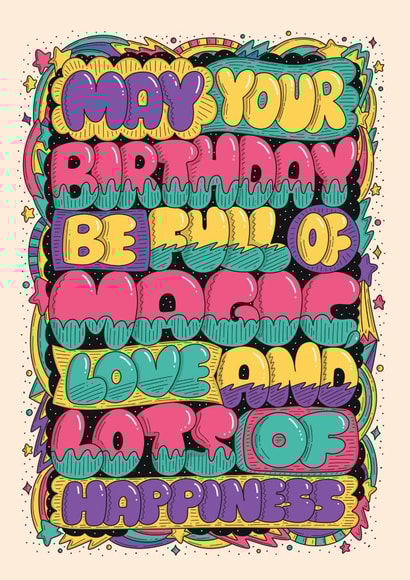 MAY YOUR
BIRTHDAY
BE FULL OF
MAGIC
LOVE AND
LOTS OF
HAPPINESS